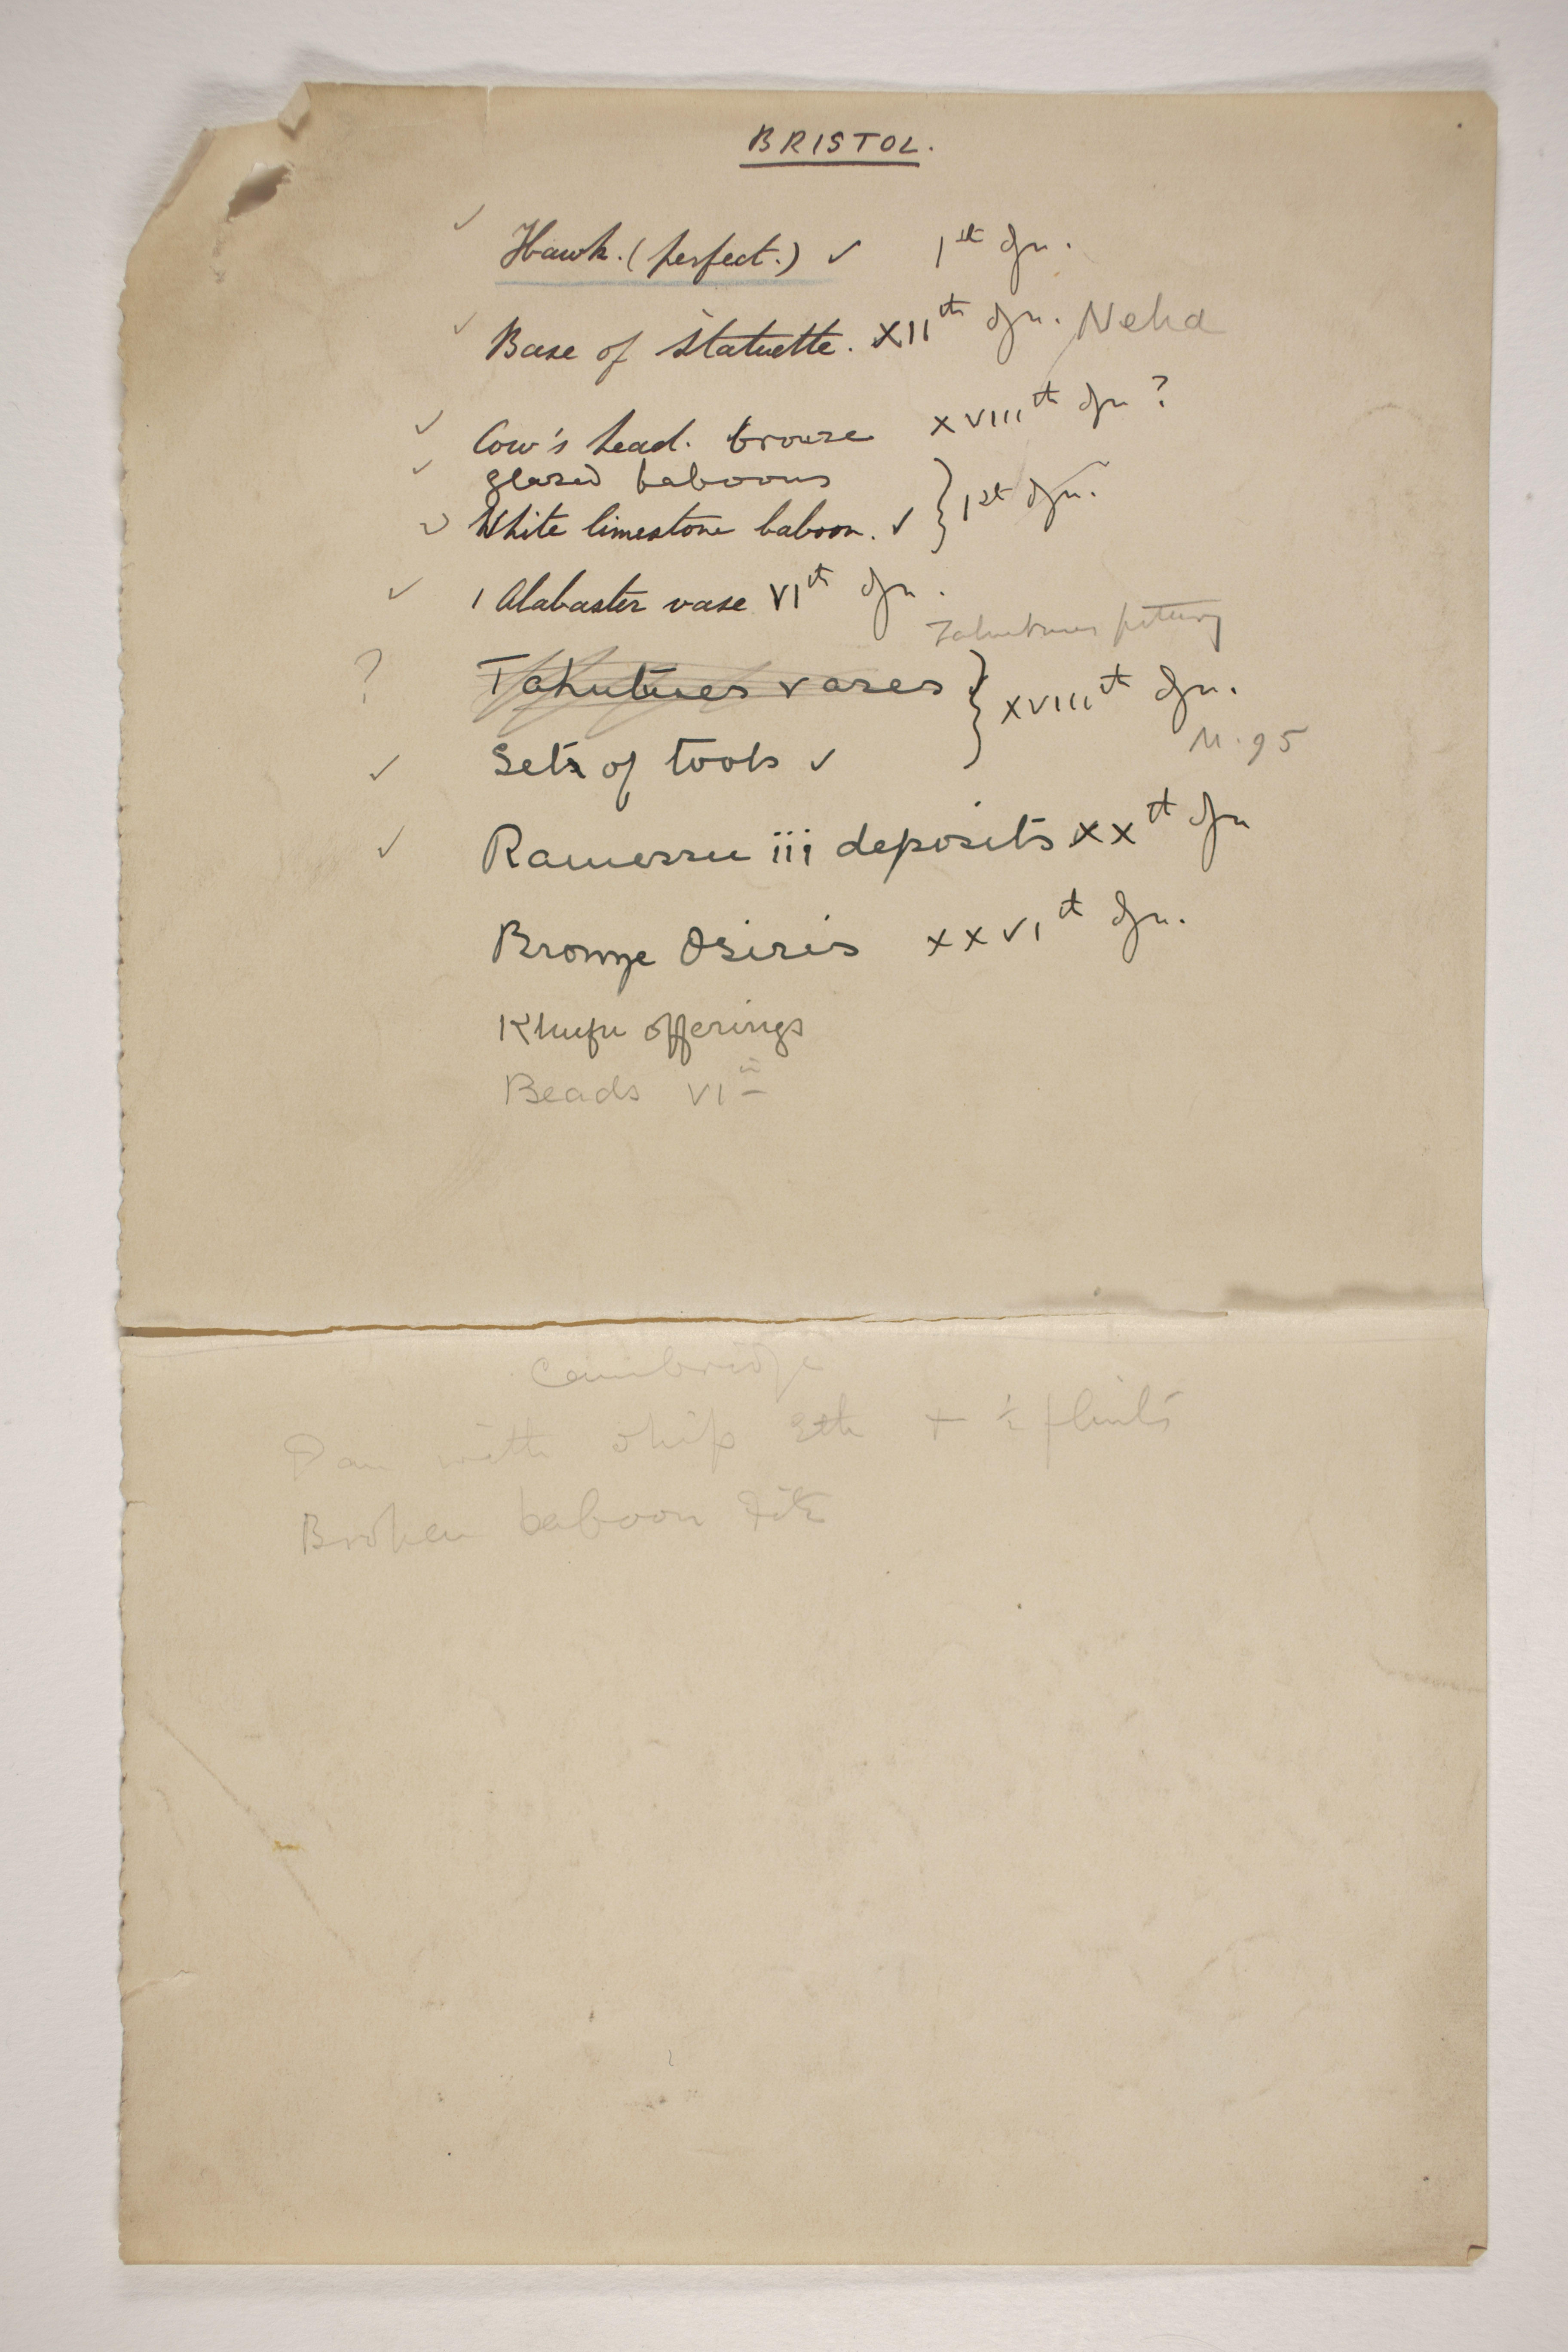 BRISTOL.
✓ Hawk. (perfect.) ✓ 1st dyn.
✓ Base of statuette. XIIth dyn. Neha
✓ Cow's head. bronze XVIIIth dyn ?
✓ glazed baboons
✓ White limestone baboon. ✓ } 1st dyn.
✓ 1 Alabaster vase VIth dyn.
Tahutmes pottery
? Tahutmes vases
✓ Sets of tools ✓ } XVIIIth dyn.
M. 95
✓ Ramessu iii deposits XXth dyn
Bronze Osiris XXVIth dyn.
Khufu offerings
Beads VI
Cambridge
Pan with ship + ½ flints
Broken baboon